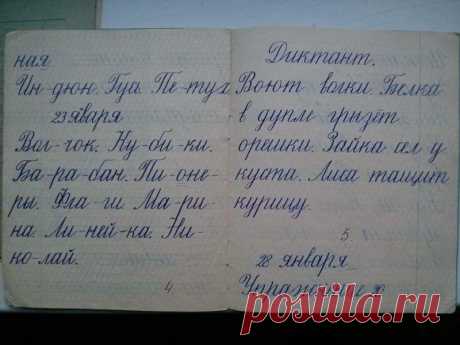 ная
Ин-дюк. Пе-тух
23 января
Вол-чок. Ку-би-ки.
Ба-ра-бан. Пи-оне-
ры. Фла-ги Ма-ри-
на Ли-ней-ка. Ни-
ко-лай.
4
Диктант.
Воют волки. Белка
в дупле грызёт
орешки. Зайка сел у
куста. Лиса тащит
курицу.
5
28 января
Упражнение
postila.ru